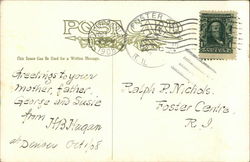 POST CARD
FOSTER
R.I.
This Space Can Be Used for a Written Message.
Greetings to your
Mother, father,
George and Susie
from
H.B. Hagan
at Denver Oct 1/08
Ralph P. Nichols
Foster Centre,
R. I.